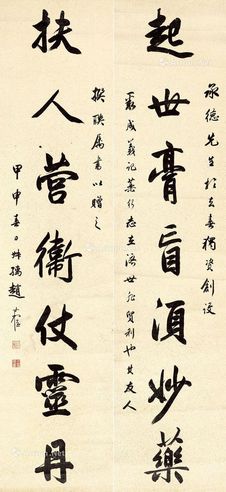 起世膏肓須妙藥
承德先生於去春獨資創設
義成義記藥行志在濟世非貿利也其友人
扶人營衛仗靈丹
撰聯屬書以贈之
甲申春日叔孺趙